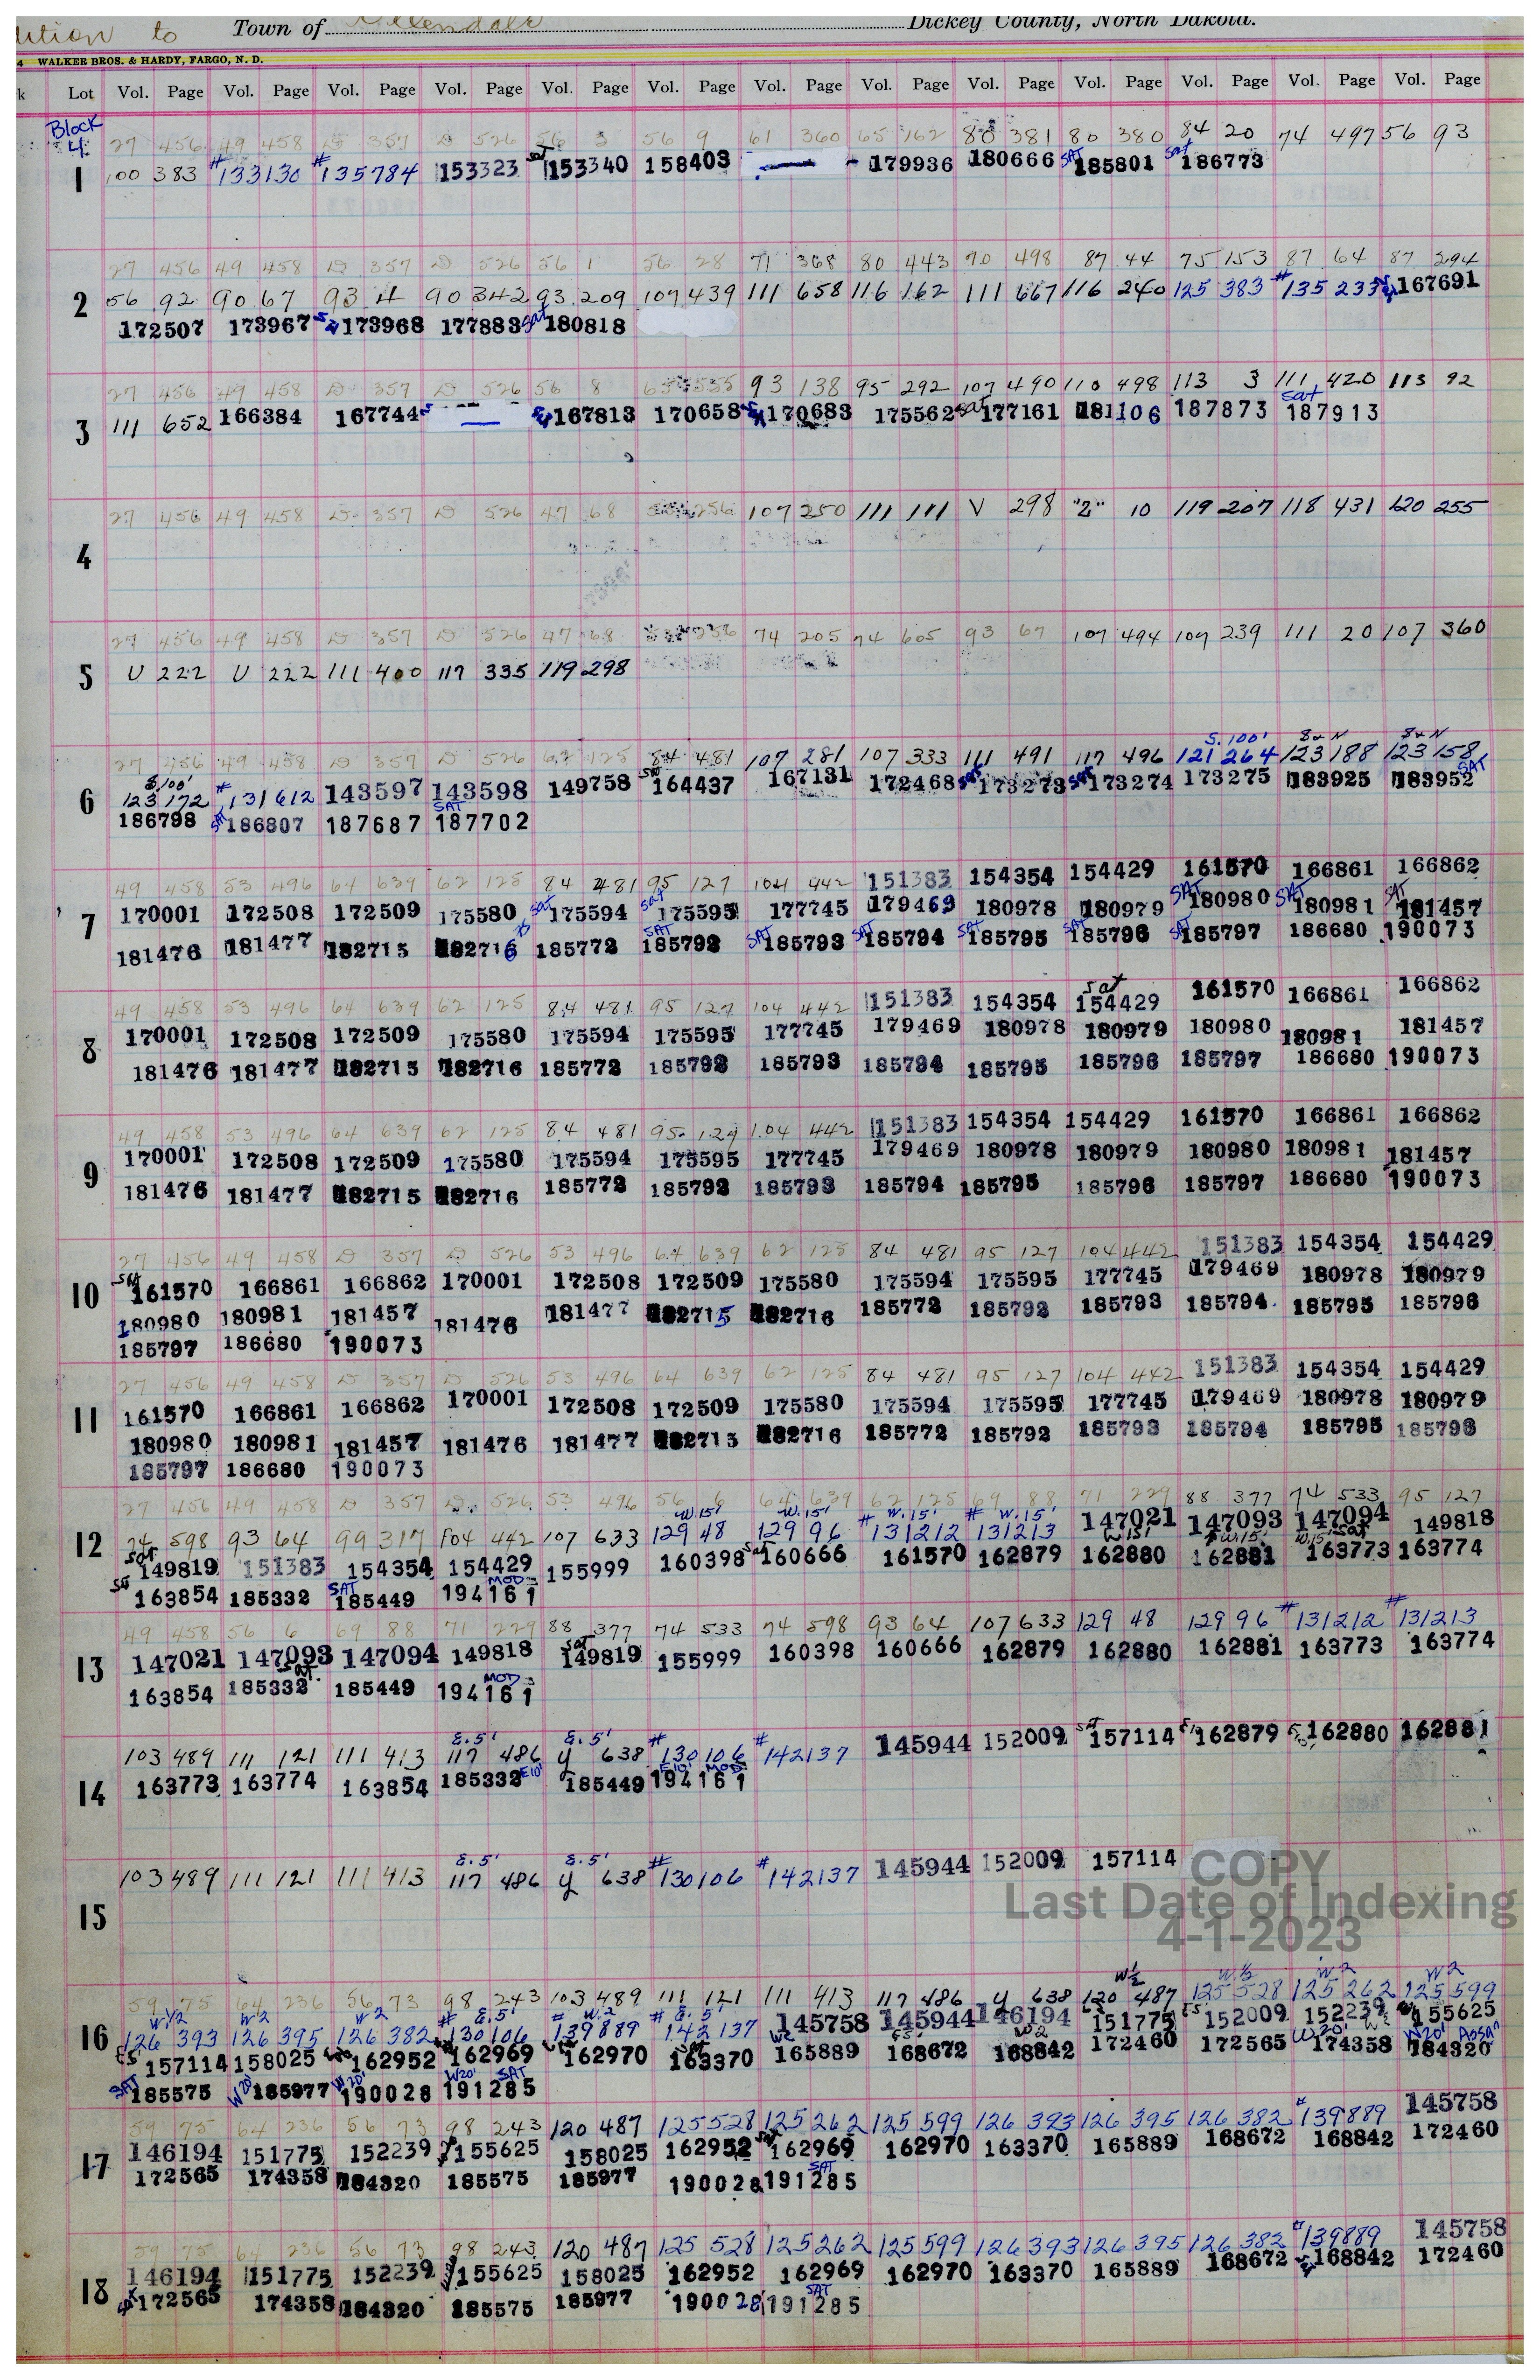 dition to Town of Ellendale Dickey County, North Dakota.
4 WALKER BROS. & HARDY, FARGO, N. D.
k Lot Vol. Page Vol. Page Vol. Page Vol. Page Vol. Page Vol. Page Vol. Page Vol. Page Vol. Page Vol. Page Vol. Page Vol. Page Vol. Page
Block 4
27 456 49 458 D 357 D 526 56 3 56 9 61 360 65 162 80 381 80 380 84 20 74 497 56 93
1 100 383 #133130 #135784 153323 sat 153340 158403 179936 180666 SAT 185801 sat 186773
27 456 49 458 D 357 D 526 56 1 56 28 71 368 80 443 90 498 87 44 75 153 87 64 87 294
2 56 92 90 67 93 4 90 342 93 209 109 439 111 658 116 162 111 667 116 240 125 383 #135 233 167691
172507 173967 173968 177883 sat 180818
27 456 49 458 D 357 D 526 56 8 65 555 93 138 95 292 107 490 110 498 113 3 111 420 113 92
3 111 652 166384 167744 167813 170658 170683 175562 sat 177161 181106 187873 sat 187913
27 456 49 458 D 357 D 526 47 68 256 107 250 111 111 V 298 "2" 10 119 207 118 431 120 255
4
27 456 49 458 D 357 D 526 47 68 256 74 205 74 605 93 67 107 494 109 239 111 20 107 360
5 U 222 U 222 111 400 117 335 119 298
S. 100' S2N S2N
27 456 49 458 D 357 D 526 62 125 84 481 107 281 107 333 111 491 117 496 121 264 123 188 123 158
6 S.100' 123 172 #131612 143597 143598 149758 sat 164437 167131 172468 sat 173273 sat 173274 173275 183925 183952 SAT
186798 SAT 186807 187687 SAT 187702
49 458 53 496 64 639 62 125 84 481 95 127 104 442 151383 154354 154429 161570 166861 166862
7 170001 172508 172509 175580 sat 175594 sat 175595 177745 179469 180978 180979 SAT 180980 SAT 180981 SAT 181457
181476 181477 182715 182716 185772 SAT 185792 SAT 185793 SAT 185794 SAT 185795 SAT 185796 SAT 185797 186680 190073
49 458 53 496 64 639 62 125 84 481 95 127 104 442 151383 154354 sat 154429 161570 166861 166862
8 170001 172508 172509 175580 175594 175595 177745 179469 180978 180979 180980 180981 181457
181476 181477 182715 182716 185772 185792 185793 185794 185795 185796 185797 186680 190073
49 458 53 496 64 639 62 125 84 481 95 127 104 442 151383 154354 154429 161570 166861 166862
9 170001 172508 172509 175580 175594 175595 177745 179469 180978 180979 180980 180981 181457
181476 181477 182715 182716 185772 185792 185793 185794 185795 185796 185797 186680 190073
27 456 49 458 D 357 D 526 53 496 64 639 62 125 84 481 95 127 104 442 151383 154354 154429
10 sat 161570 166861 166862 170001 172508 172509 175580 175594 175595 177745 179469 180978 180979
180980 180981 181457 181476 181477 182715 182716 185772 185792 185793 185794 185795 185796
185797 186680 190073
27 456 49 458 D 357 D 526 53 496 64 639 62 125 84 481 95 127 104 442 151383 154354 154429
11 161570 166861 166862 170001 172508 172509 175580 175594 175595 177745 179469 180978 180979
180980 180981 181457 181476 181477 182715 182716 185772 185792 185793 185794 185795 185796
185797 186680 190073
27 456 49 458 D 357 D 526 53 496 56 6 64 639 62 125 69 88 71 229 88 377 74 533 95 127
12 74 598 93 64 99 317 104 442 107 633 W.15' 129 48 W.15' 129 96 # W.15' 131212 # W.15' 131213 147021 147093 147094 149818
sat 149819 151383 154354 154429 155999 160398 sat 160666 161570 162879 W15' 162880 W.15' 162881 W.15' sat 163773 163774
163854 185332 SAT 185449 MOD 194161
49 458 56 6 69 88 71 229 88 377 74 533 74 598 93 64 107 633 129 48 129 96 #131212 #131213
13 147021 147093 147094 149818 sat 149819 155999 160398 160666 162879 162880 162881 163773 163774
163854 185332 sat. 185449 MOD 194161
E.5' E.5'
103 489 111 121 111 413 117 486 y 638 #130106 #142137 145944 152009 sat 157114 162879 162880 162881
14 163773 163774 163854 185332 E10' 185449 E10' MOD 194161
E.5' E.5'
103 489 111 121 111 413 117 486 y 638 #130106 #142137 145944 152009 157114
15
COPY
Last Date of Indexing
4-1-2023
W½ W.½ W2 W2
59 75 64 236 56 73 98 243 103 489 111 121 111 413 117 486 y 638 120 487 125 528 125 262 125 599
16 W½ 126 393 W2 126 395 W2 126 382 # E.5' 130106 # W.2 139889 # E.5' 142137 145758 145944 146194 151775 152009 152239 155625
E5' 157114 158025 162952 162969 162970 163370 W2 165889 168672 W2 168842 172460 172565 W20' 174358 W20' 184320
SAT 185575 W20' 185977 W20' 190028 W20' SAT 191285
59 75 64 236 56 73 98 243 120 487 125 528 125 262 125 599 126 393 126 395 126 382 #139889 145758
17 146194 151775 152239 155625 158025 162952 162969 162970 163370 165889 168672 168842 172460
172565 174358 184320 185575 185977 190028 SAT 191285
59 75 64 236 56 73 98 243 120 487 125 528 125 262 125 599 126 393 126 395 126 382 #139889 145758
18 146194 151775 152239 155625 158025 162952 162969 162970 163370 165889 168672 168842 172460
172565 174358 184320 185575 185977 190028 SAT 191285